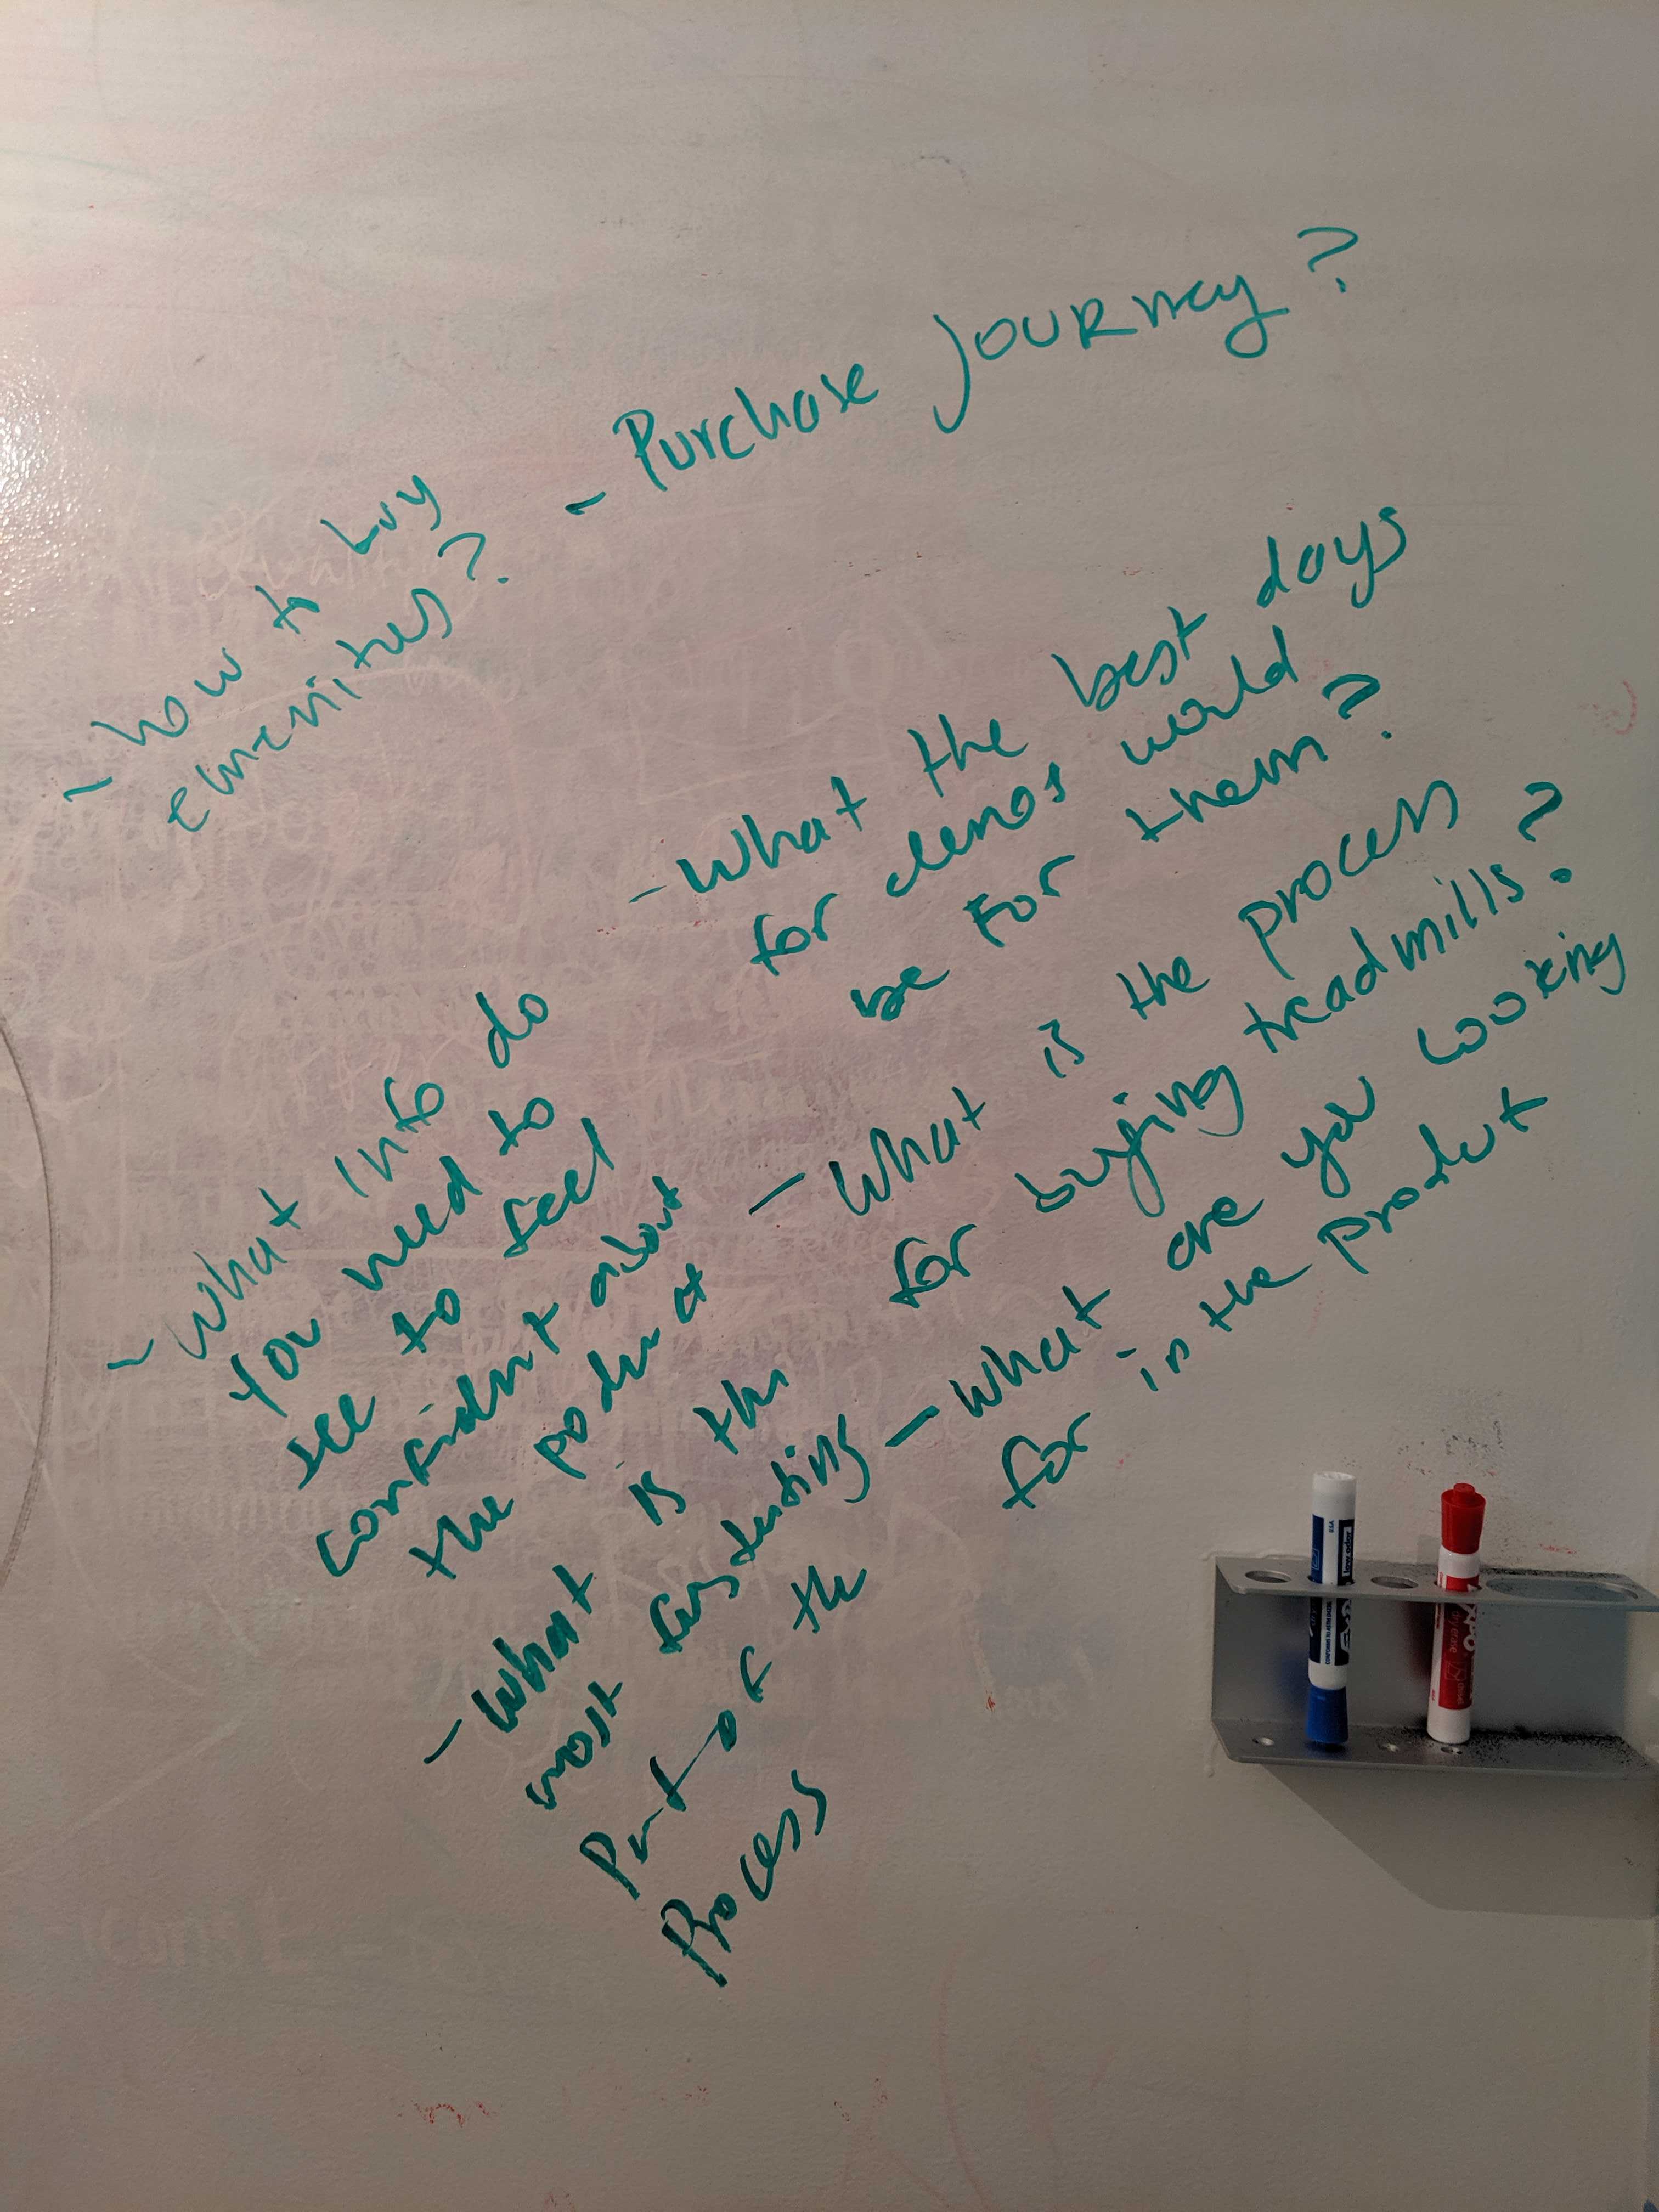 - how to buy
emenities?
- Purchase Journey?
- What info do
You need to
see to feel
confident about
the podruct
- What the best days
for demos would
be For them?
- What is the process
for buying treadmills?
- What is the
most fursturding
Part of the
Process
- What are you Looking
for in the product
EXPO
low odor
dry erase